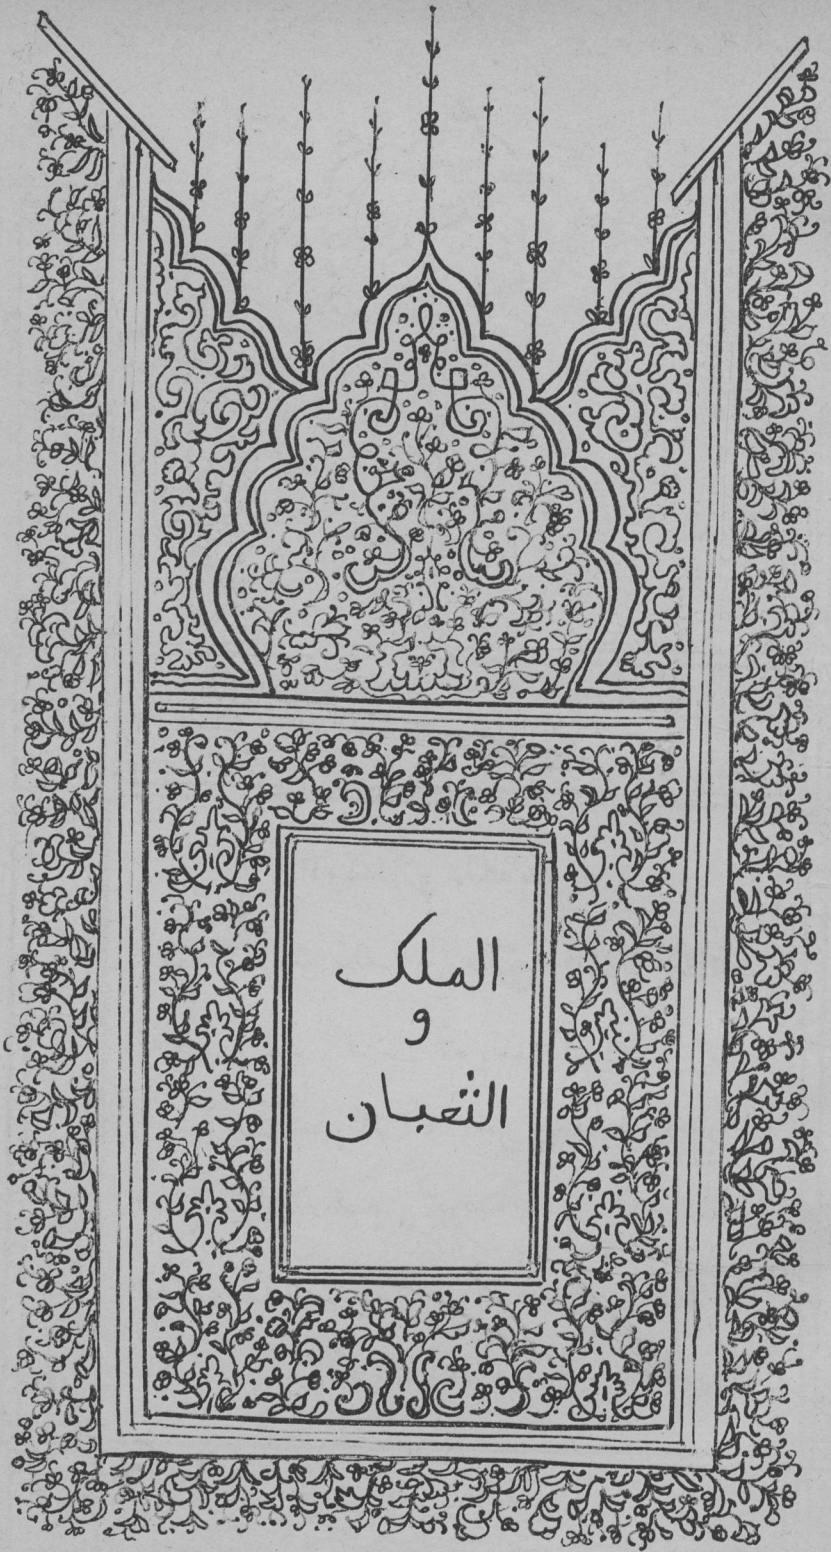 الملك
و
الثعبان